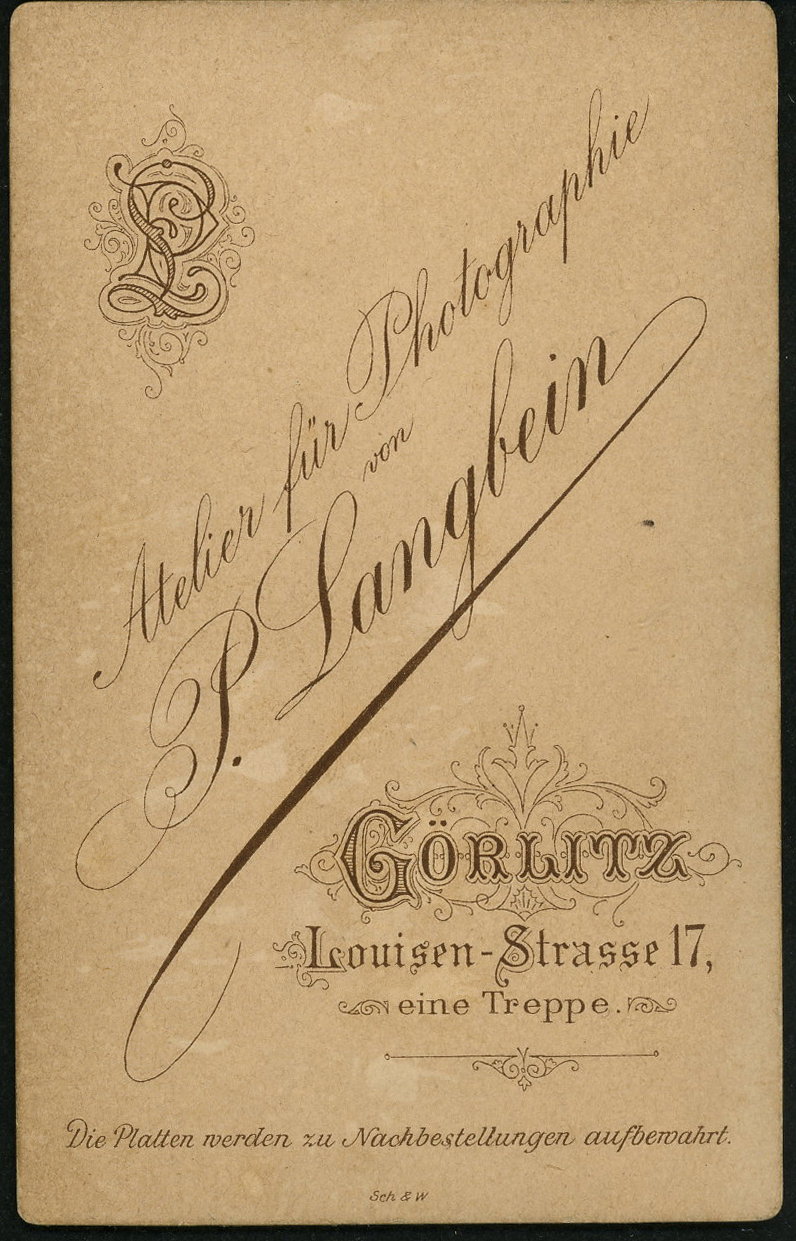 PL
Atelier für Photographie
von
P. Langbein
GÖRLITZ
Louisen-Strasse 17,
eine Treppe.
Die Platten werden zu Nachbestellungen aufbewahrt.
Sch & W